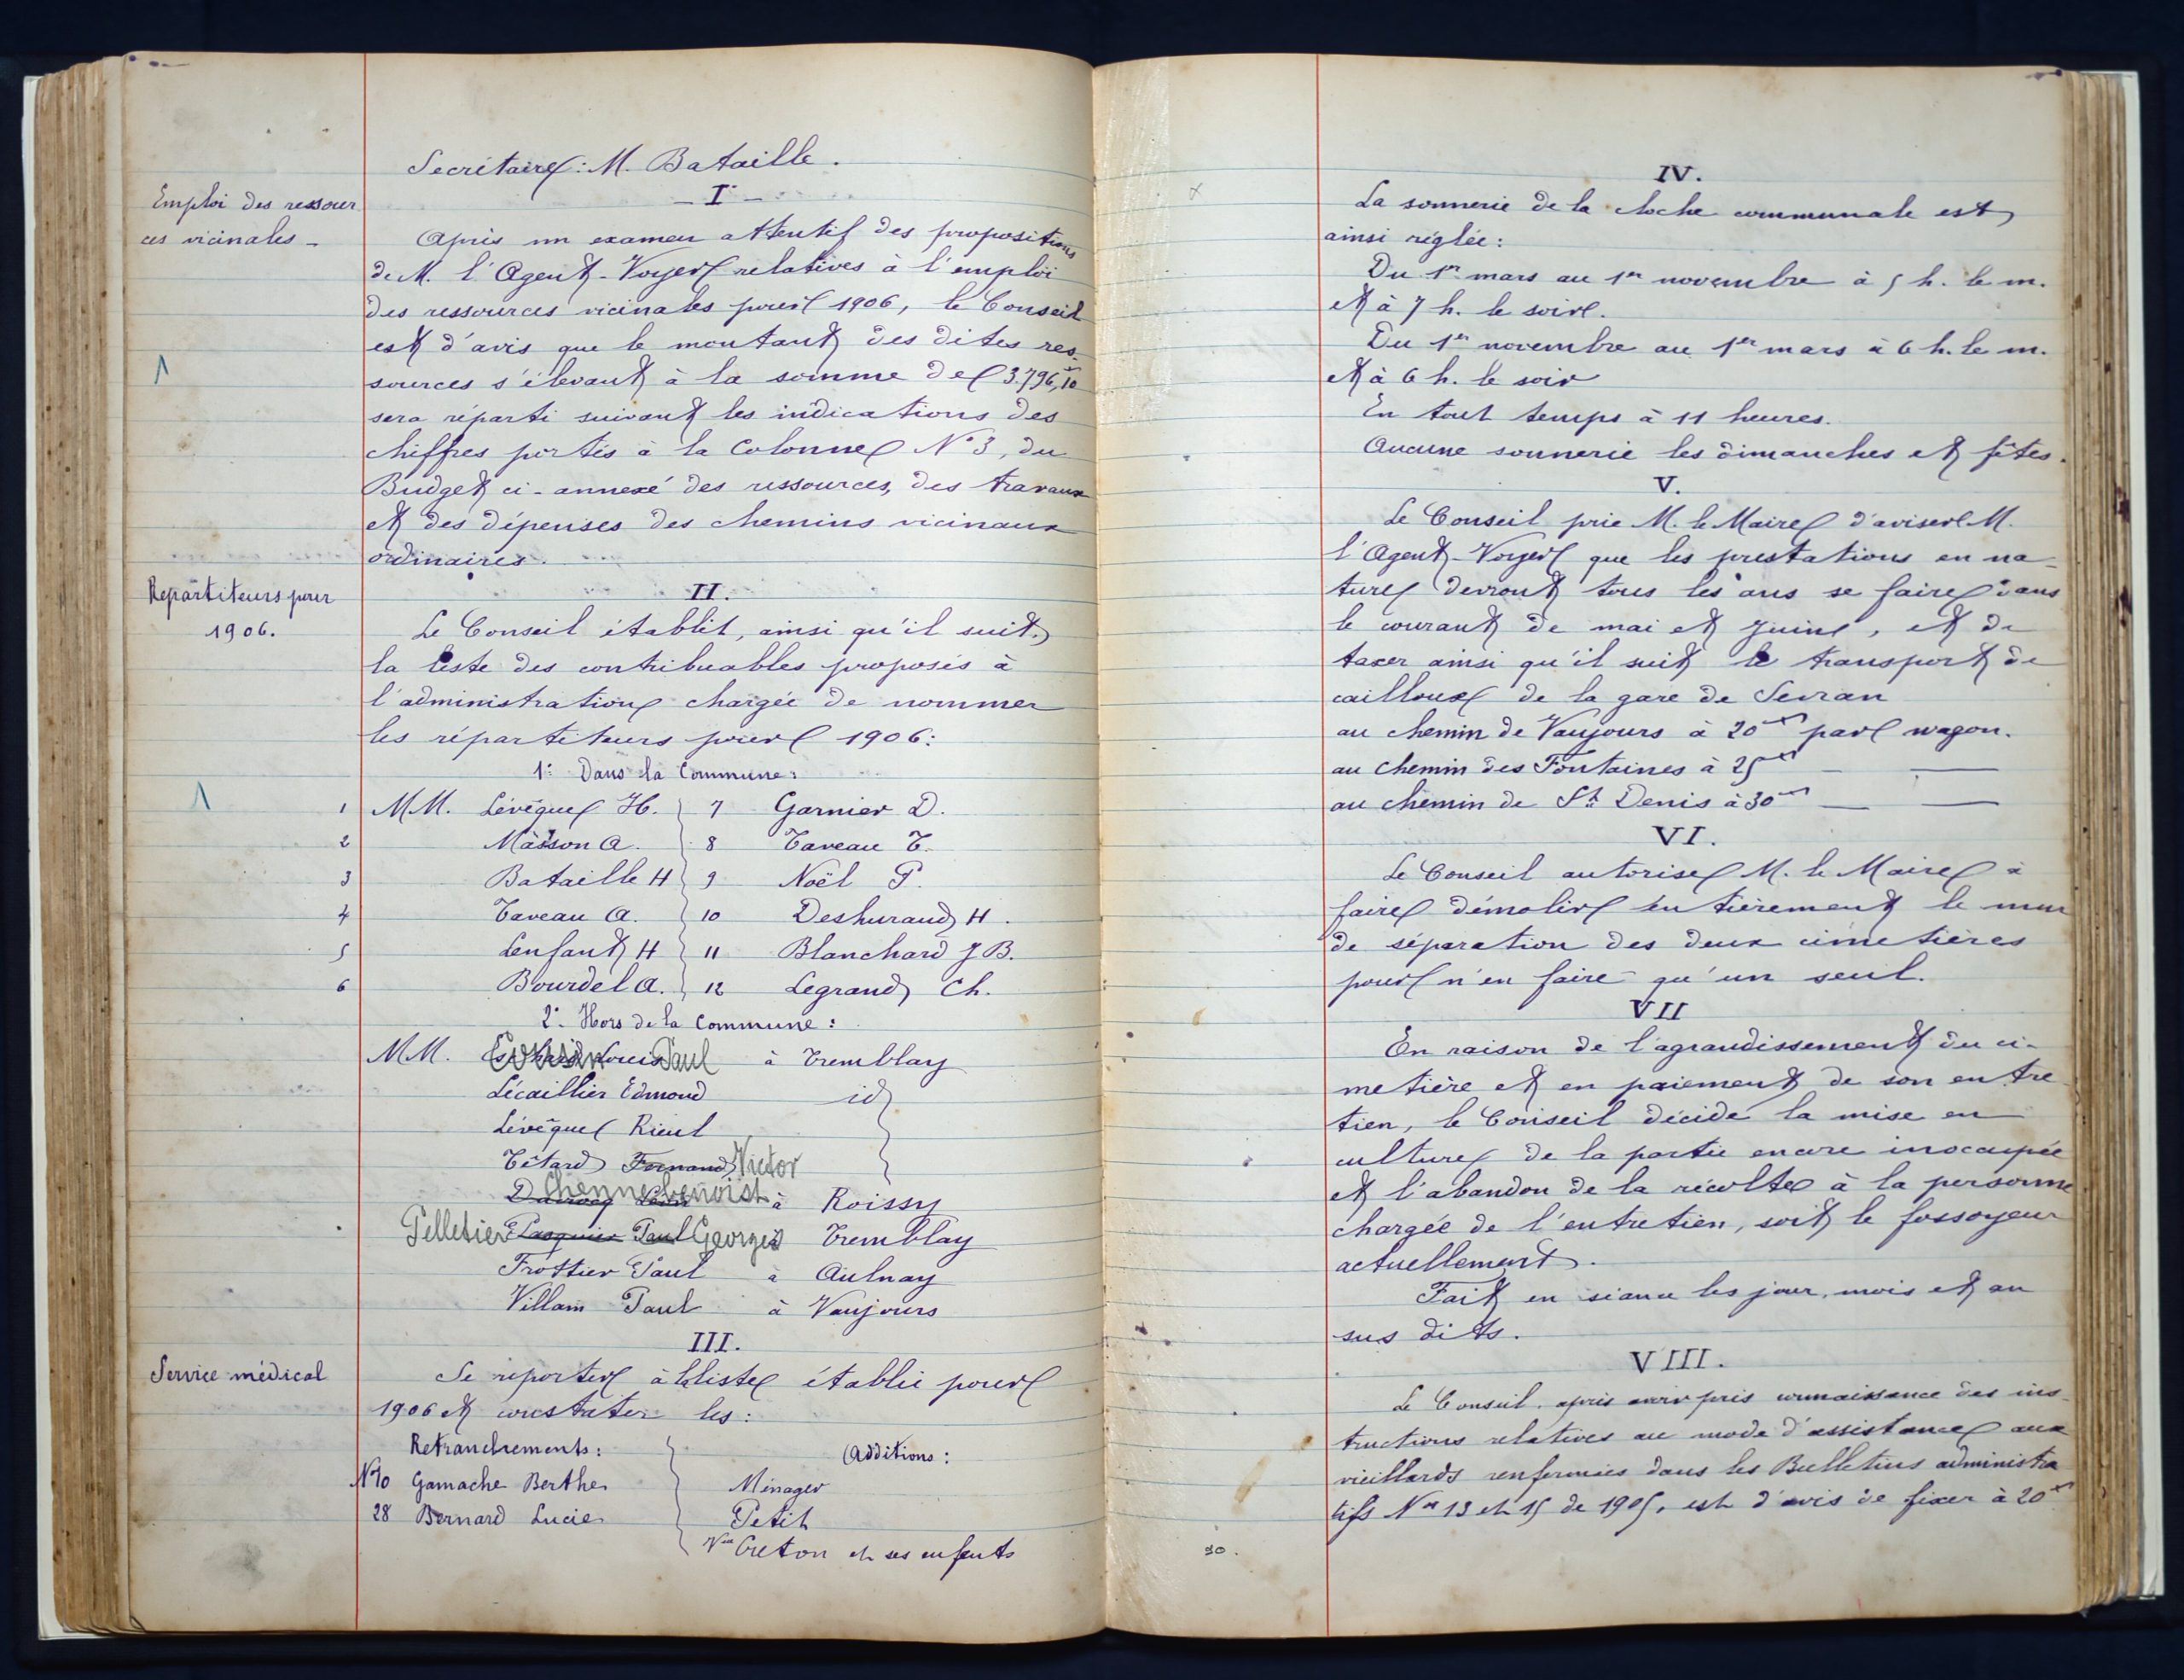 Secrétaire: M. Bataille.
- I -
Emploi des ressour
ces vicinales -
Après un examen attentif des propositions
de M. l'Agent-Voyer relatives à l'emploi
des ressources vicinales pour 1906, le Conseil
est d'avis que le montant des dites res-
sources s'élevant à la somme de 3.796,10
sera réparti suivant les indications des
chiffres portés à la Colonne N° 3, du
Budget ci-annexé des ressources, des travaux
et des dépenses des chemins vicinaux
ordinaires.
II.
Repartiteurs pour
1906.
Le Conseil établit, ainsi qu'il suit,
la liste des contribuables proposés à
l'administration chargée de nommer
les répartiteurs pour 1906:
1° Dans la Commune:
1 MM. Lévêque H. 7 Garnier D.
2 Masson A. 8 Taveau T.
3 Bataille H 9 Noël P.
4 Taveau A. 10 Deshuraud H.
5 Lenfant H 11 Blanchard J B.
6 Bourdel A. 12 Legrand Ch.
2°. Hors de la Commune:
MM. Louis Paul à Tremblay
Lécaillier Edmond id
Lévêque Rieul
Têtard Fernand Victor
Chennebenoist à Roissy
Pelletier Pasquier Paul Georges à Tremblay
Frottier Paul à Aulnay
Villain Paul à Vaujours
III.
Service médical
Se reporter à la liste établie pour
1906 et constater les:
Retranchements: Additions:
N°10 Gamache Berthe Ménager
28 Bernard Lucie Petit
Vve Creton et ses enfants
IV.
La sonnerie de la cloche communale est
ainsi réglée:
Du 1er mars au 1er novembre à 5 h. le m.
et à 7 h. le soir.
Du 1er novembre au 1er mars à 6 h. le m.
et à 6 h. le soir
En tout temps à 11 heures.
Aucune sonnerie les dimanches et fêtes.
V.
Le Conseil prie M. le Maire d'aviser M.
l'Agent-Voyer que les prestations en na-
ture devront tous les ans se faire dans
le courant de mai et Juin, et de
taxer ainsi qu'il suit le transport de
cailloux de la gare de Sevran
au chemin de Vaujours à 20 par wagon.
au chemin des Fontaines à 25 — —
au chemin de St Denis à 30 — —
VI.
Le Conseil autorise M. le Maire à
faire démolir entièrement le mur
de séparation des deux cimetières
pour n'en faire qu'un seul.
VII
En raison de l'agrandissement du ci-
metière et en paiement de son entre
tien, le Conseil décide la mise en
culture de la partie encore inocupée
et l'abandon de la récolte à la personne
chargée de l'entretien, soit le fossoyeur
actuellement.
Fait en séance les jour, mois et an
sus dits.
VIII.
Le Conseil, après avoir pris connaissance des ins-
tructions relatives au mode d'assistance aux
vieillards renfermées dans les Bulletins administra
tifs Nos 13 et 15 de 1905, est d'avis de fixer à 20